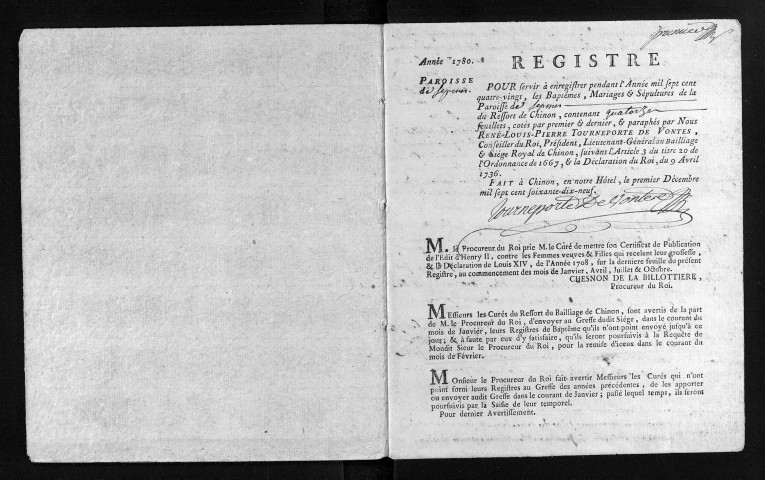 premier
Année 1780.
REGISTRE
PAROISSE
de Sepmes
POUR servir à enregistrer pendant l'Année mil sept cent
quatre-vingt, les Baptêmes, Mariages & Sépultures de la
Paroisse de Sepmes
du Ressort de Chinon, contenant quatorze
feuillets, cotés par premier & dernier, & paraphés par Nous
RENÉ-LOUIS-PIERRE TOURNEPORTE DE VONTES,
Conseiller du Roi, Président, Lieutenant-Général au Bailliage
& Siége Royal de Chinon, suivant l'Article 3 du titre 20 de
l'Ordonnance de 1667, & la Déclaration du Roi, du 9 Avril
1736.
FAIT à Chinon, en notre Hôtel, le premier Décembre
mil sept cent soixante-dix-neuf.
Tourneporte De Vontes
M. le Procureur du Roi prie M. le Curé de mettre son Certificat de Publication
de l'Edit d'Henry II, contre les Femmes veuves & Filles qui recelent leur grossesse,
& la Déclaration de Louis XIV, de l'Année 1708, sur la derniere feuille du présent
Registre, au commencement des mois de Janvier, Avril, Juillet & Octobre.
CHESNON DE LA BILLOTTIERE,
Procureur du Roi.
MEssieurs les Curés du Ressort du Bailliage de Chinon, sont avertis de la part
de M. le Procureur du Roi, d'envoyer au Greffe dudit Siége, dans le courant du
mois de Janvier, leurs Registres de Baptême qu'ils n'ont point envoyé jusqu'à ce
jour; & à faute par eux d'y satisfaire, qu'ils seront poursuivis à la Requête de
Mondit Sieur le Procureur du Roi, pour la remise d'iceux dans le courant du
mois de Février.
MOnsieur le Procureur du Roi fait avertir Messieurs les Curés qui n'ont
point forni leurs Registres au Greffe des années précédentes, de les apporter
ou envoyer audit Greffe dans le courant de Janvier; passé lequel temps, ils seront
poursuivis par la Saisie de leur temporel.
Pour dernier Avertissement.